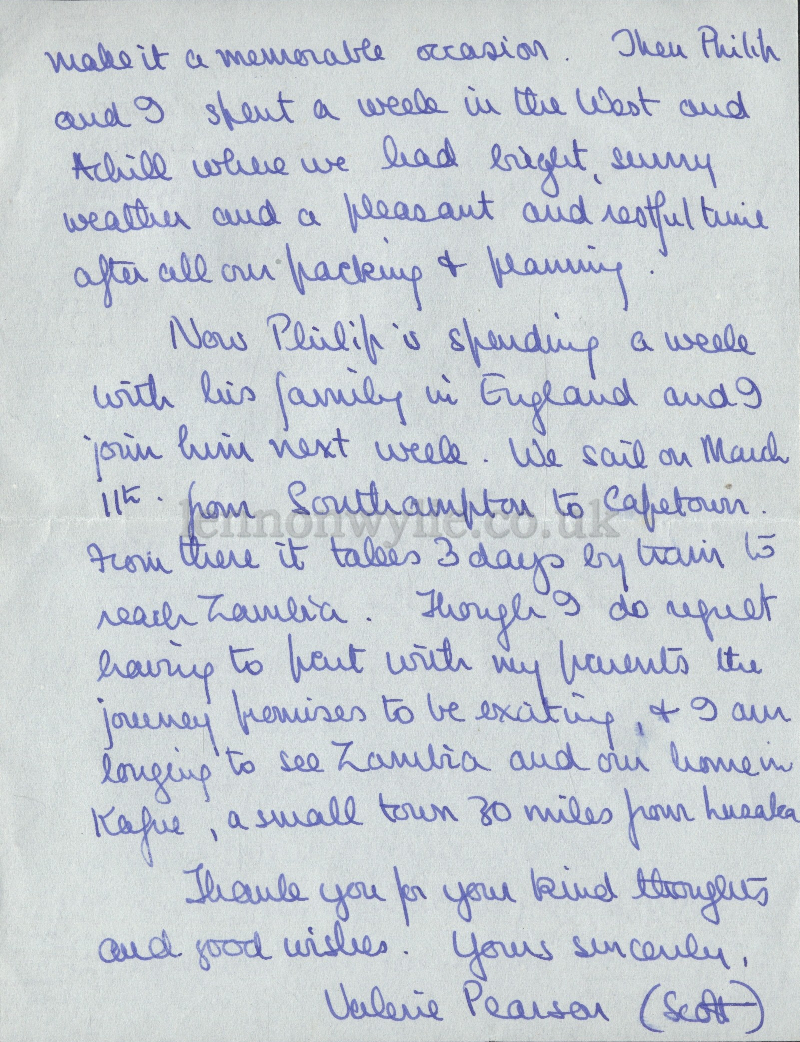 make it a memorable occasion. Then Philip
and I spent a week in the West and
Achill where we had bright, sunny
weather and a pleasant and restful time
after all our packing & planning.
Now Philip is spending a week
with his family in England and I
join him next week. We sail on March
11th. from Southampton to Capetown.
lennonwylie.co.uk
From there it takes 3 days by train to
reach Zambia. Though I do regret
having to part with my parents the
journey promises to be exciting, & I am
longing to see Zambia and our home in
Kafue, a small town 30 miles from Lusaka
Thank you for your kind thoughts
and good wishes. Yours sincerely,
Valerie Pearson (Scott)